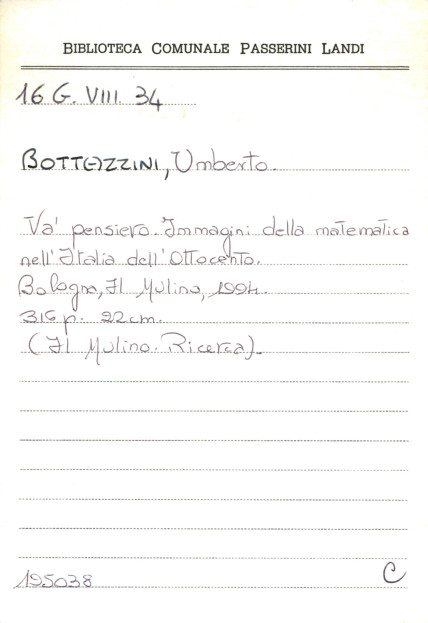 BIBLIOTECA COMUNALE PASSERINI LANDI
16 G. VIII. 34
BOTTAZZINI, Umberto.
Va' pensiero. Immagini della matematica
nell'Italia dell'Ottocento.
Bologna, Il Mulino, 1994.
316 p. 22 cm.
(Il Mulino. Ricerca).
195038
C